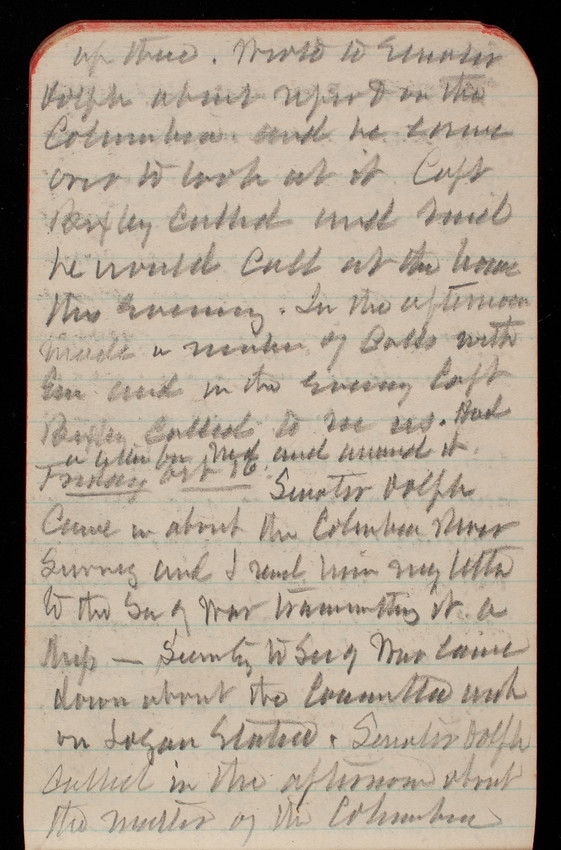 of three. Wrote to Senator
Dolph about report on the
Columbia and he came
over to look at it Capt
Bixby called and said
he would call at the house
this evening. In the afternoon
made a number of calls with
Em and in the evening Capt
Bixby called to see us. Had
a letter from and it.
Friday 16. Senator Dolph
Came in about the Columbia River
Survey and I read him my letter
to the Sec of War transmitting it. a
— Secretary to Sec of War came
down about the Committee
on Logan Statue. Senator Dolph
called in the afternoon about
the matter of the Columbia